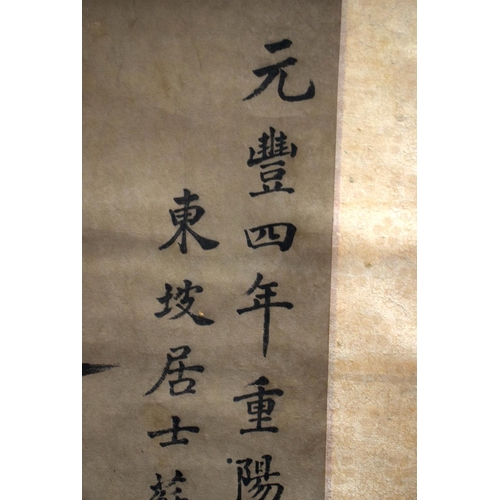 元豐四年重陽
東坡居士蘇